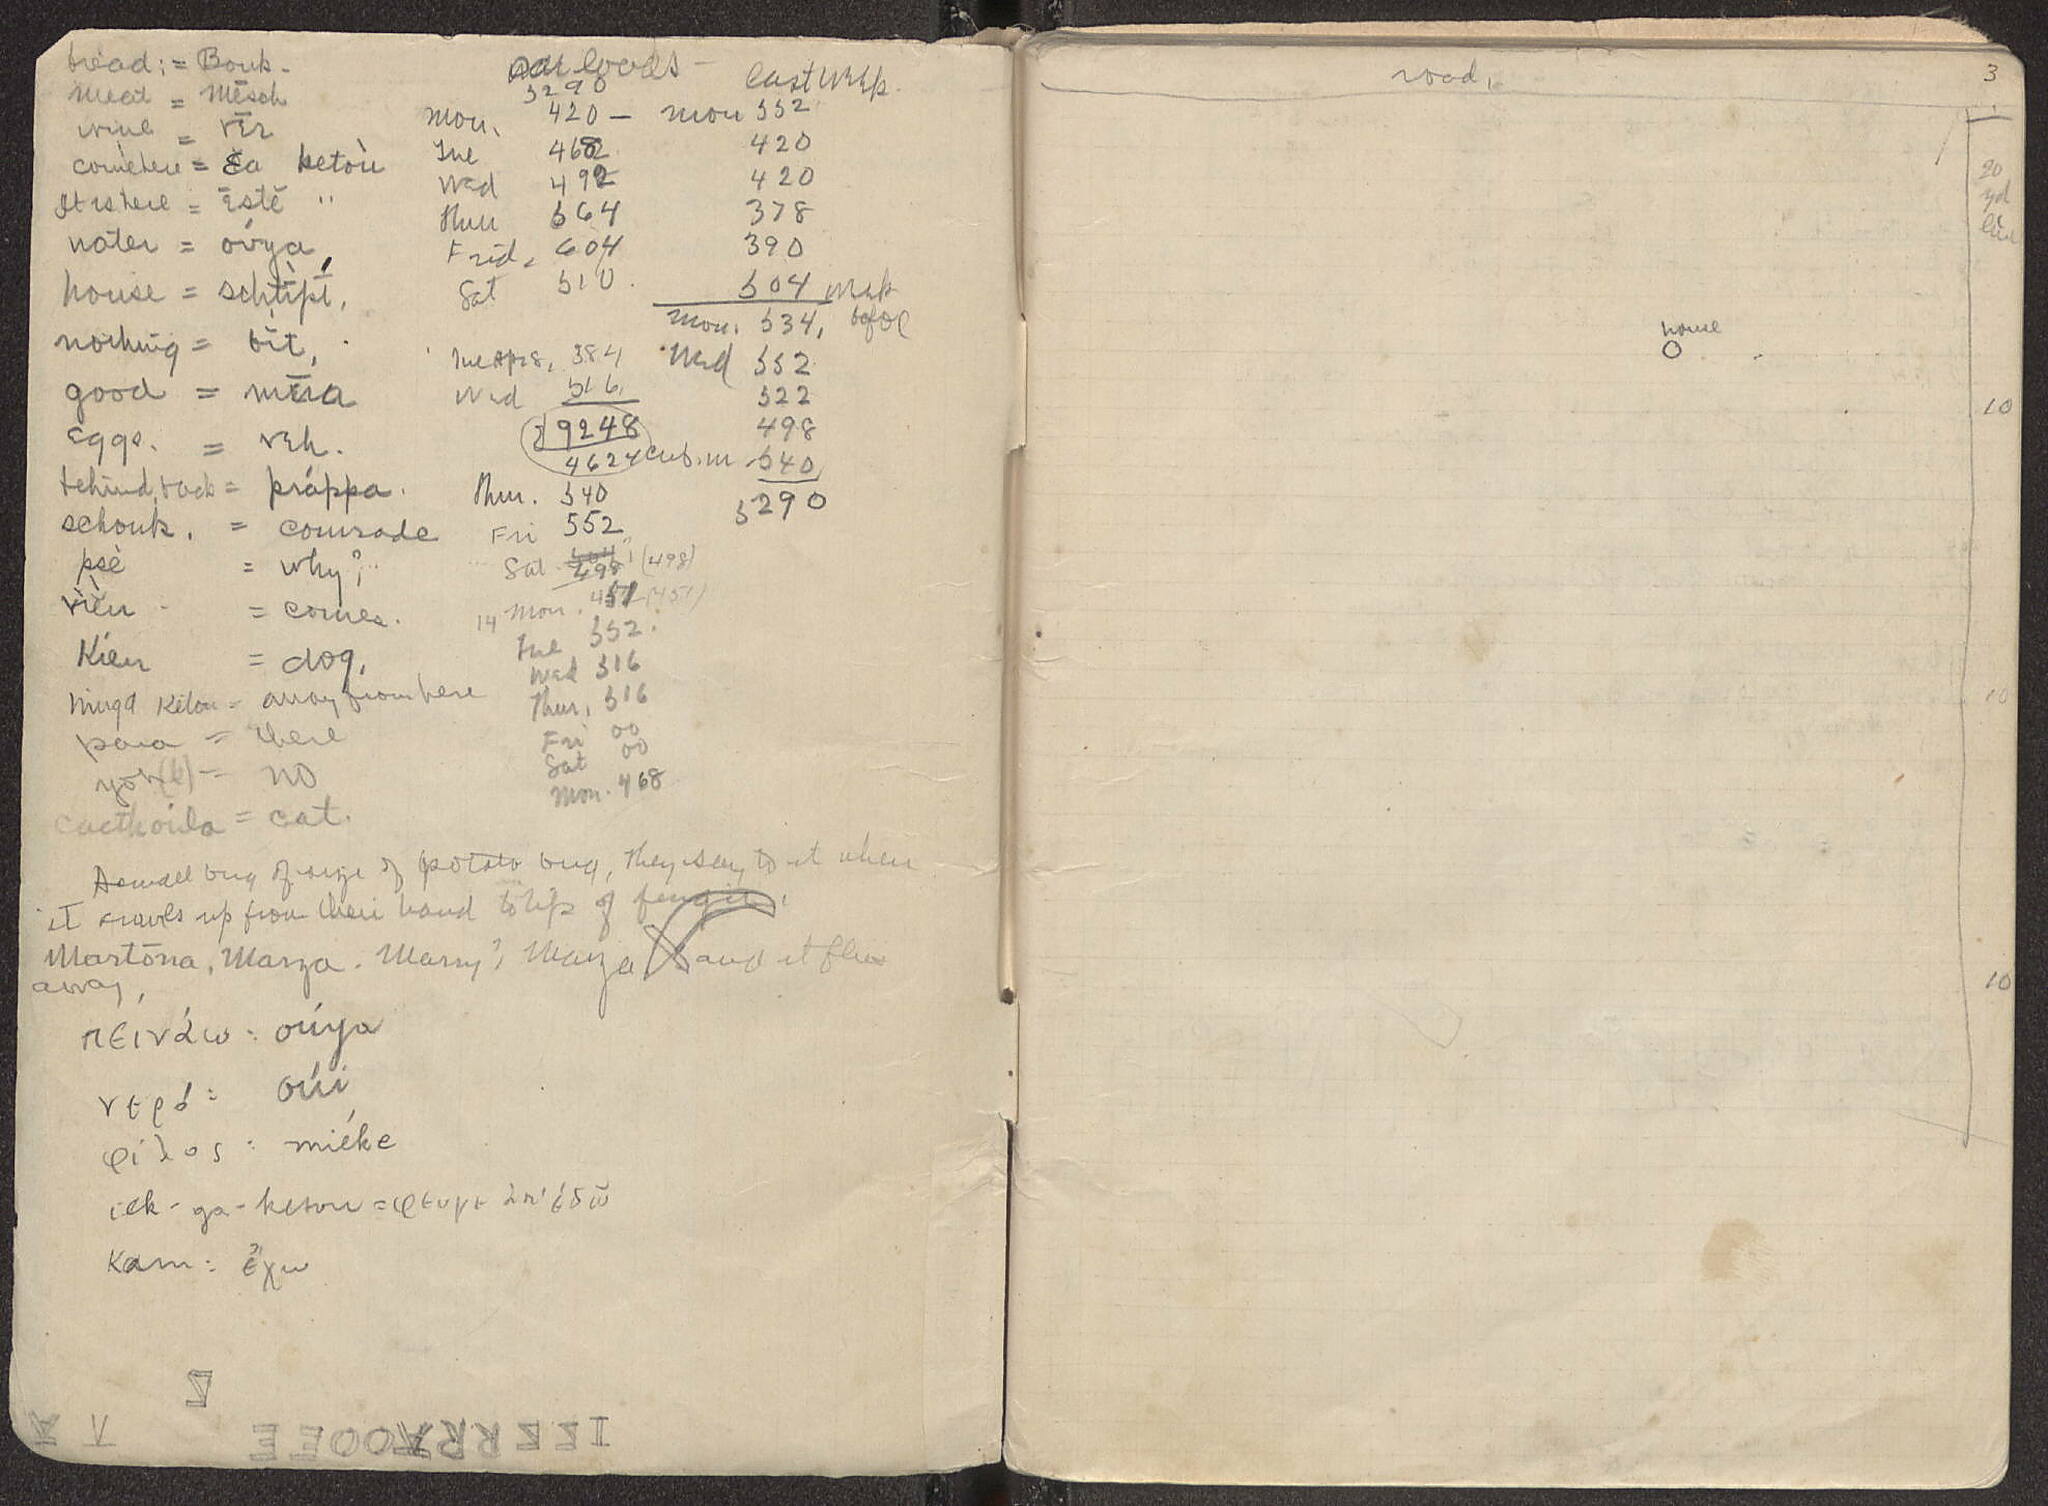 bread; = Bouk -
meat = mēsch
wine = vēr
come here = ĕa ketoù
It is here = ēstĕ "
water = oúya,
house = schtĭpĭ,
nothing = bît,
good = mēra
eggs. = veh.
behind, back = práppa.
schouk. = comrade
psè = why?
vièn - = comes.
Kien = dog,
hinga Ketou = away from here
para = there
= no
= cat.
car loads - last week.
5290
Mon. 420 - mon 552
Tue 468 420
Wed 492 420
Thur 564 378
Frid. 604 390
Sat 510. 504 week
Mon. 534, before
Tue Apr 8, 384 Wed 552
Wed 516 522
2 9248 498
4624 cub. m 540
Thur. 540 5290
Fri 552
Sat 498 (498)
14 Mon. 451 (451)
Tue 552.
Wed 516
Thur, 516
Fri 00
Sat 00
Mon. 468
A small bug of size of potato bug, they say to it when
it crawls up from their hand to tip of finger,
Martōna, Marza. Marry? Marza and it flies
away,
πεινάω: oúya
νερό: oúi
φίλος: miéke
iek-ga-ketou = φευγε ἀπ' ἐδῶ
Kam: ἔχω
road,
3
20
yd
line
house
10
10
10